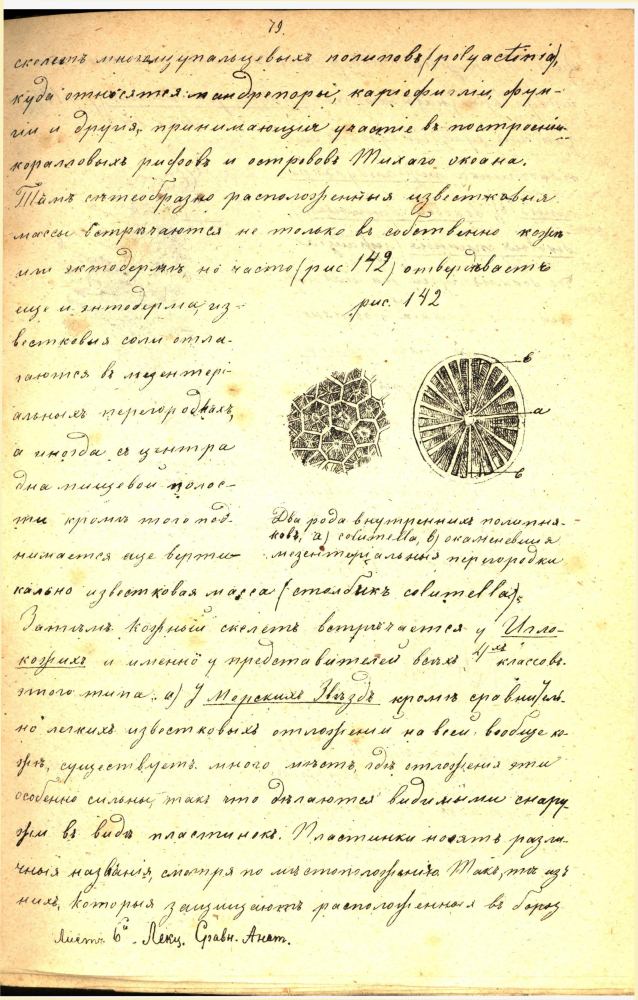 79.
скелетъ многощупальцевыхъ полиповъ (polyactinia),
куда относятся: мандрепоры, каріофилліи, фун-
гіи и другія, принимающія участіе въ построеніи
коралловыхъ рифовъ и острововъ Тихаго океана.
Тамъ сѣтеобразно расположенныя известковыя
массы встрѣчаются не только въ собственно кожѣ
или эктодермѣ, но часто (рис 142) отвердѣваетъ
еще и энтодерма, из-
вестковыя соли отла-
гаются въ мезентері-
альныхъ перегородкахъ,
а иногда съ центра
дна пищевой полос-
ти кромѣ того под-
нимается еще верти-
кально известковая масса (столбикъ columella).
рис. 142
в
а
в
Два рода внутреннихъ полипня-
ковъ, а) columella, в) окаменевшія
мезентеріальныя перегородки
Затѣмъ кожный скелетъ встрѣчается у Игло-
кожихъ и именно у представителей всѣхъ 4хъ классовъ
этого типа: а) У Морскихъ Звѣздъ кромѣ сравнитель-
но легкихъ известковыхъ отложеній на всей вообще ко-
жѣ, существуетъ много мѣстъ, гдѣ отложенія эти
особенно сильны, такъ что дѣлаются видимыми снару-
жи въ видѣ пластинокъ. Пластинки носятъ разли-
чныя названія, смотря по мѣстоположенію. Такъ, тѣ изъ
нихъ, которыя защищаютъ расположенныя въ бород
Листъ 6й. Лекц. Сравн. Анат.